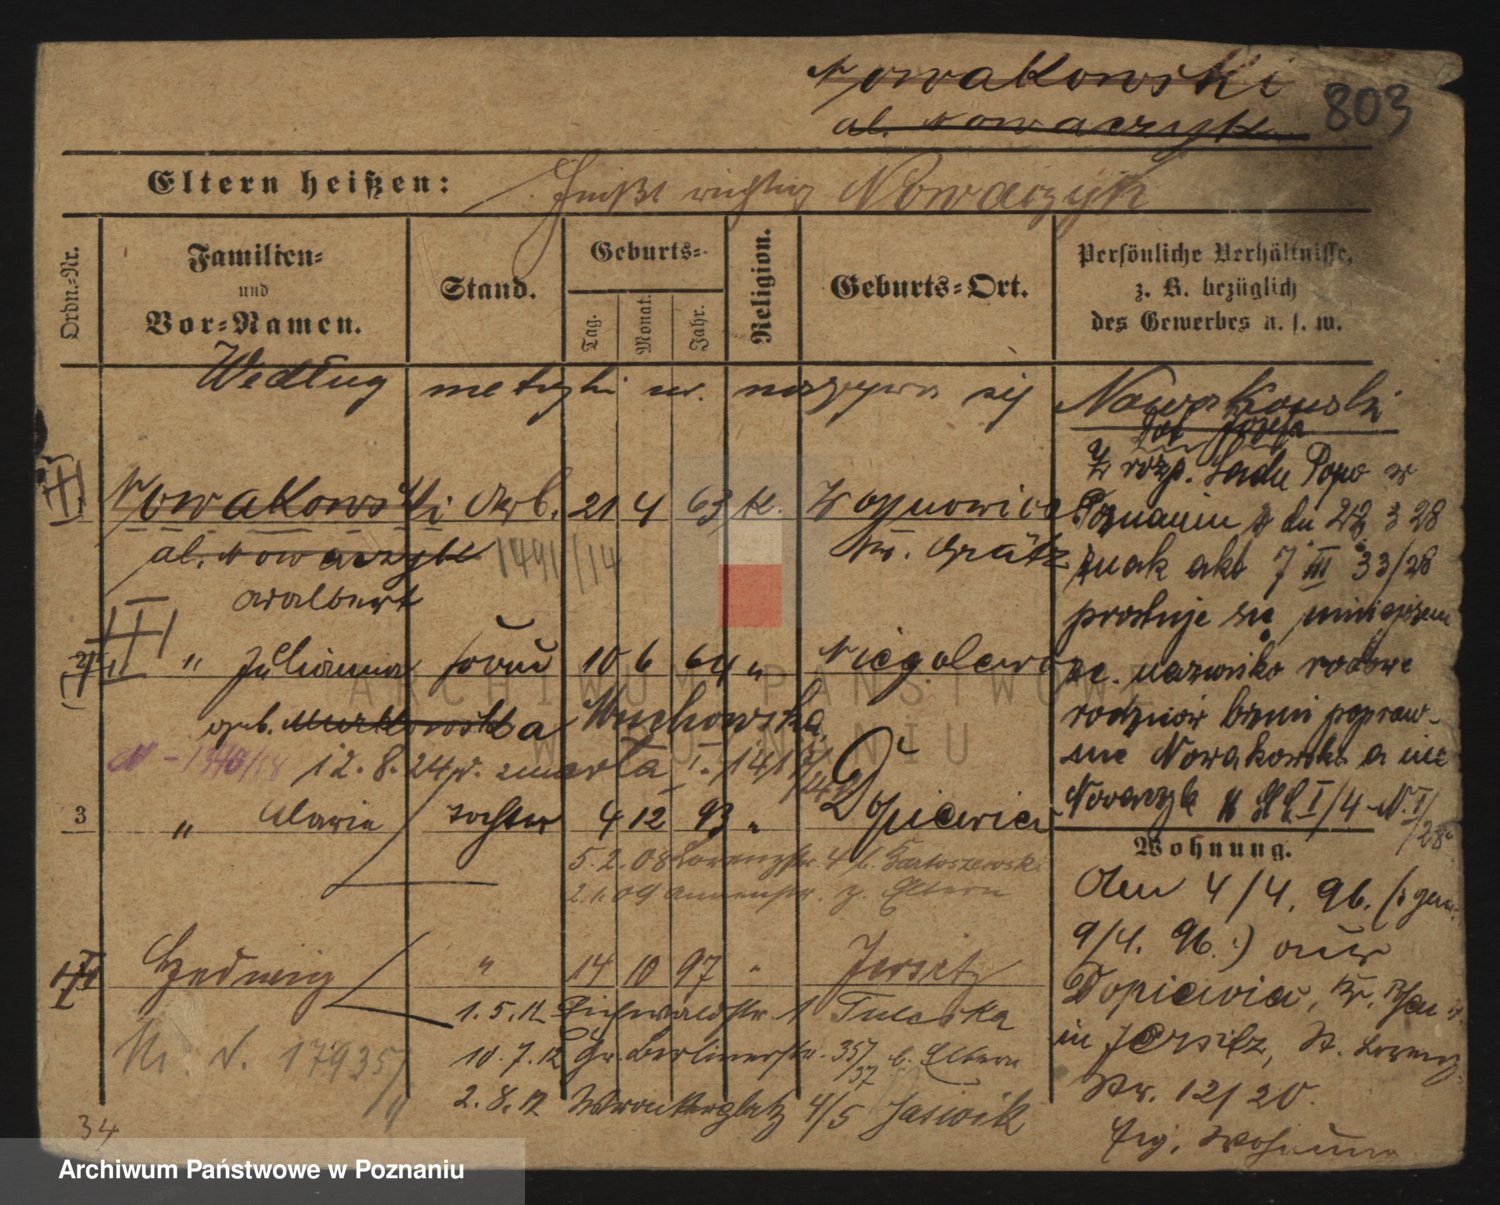 Nowakowski
al. Nowaczyk
803
Eltern heißen:
heißt richtig Nowaczyk
Ordn.-Nr.
Familien-
und
Vor-Namen.
Stand.
Geburts-
Tag.
Monat.
Jahr.
Religion.
Geburts-Ort.
Persönliche Verhältnisse,
z. B. bezüglich
des Gewerbes u. s. w.
Według metryki ur. nazywa się Nowakowski
Nowakowski Arb. 21 4 63 K. Woynowice
al. Nowaczyk Kr. Grätz
1491/14
Adalbert
Z rozp. Sądu Pow w
Poznaniu z dn 22 3 28
znak akt 7 III 33/28
prostuje się
że nazwisko rodowe
rodziców brzmi popraw-
nie Nowakowski a nie
Nowaczyk
2 " Julianna Frau 10 6 64 " Niegolewo
geb. Muchowska
12. 8. 24 r. zmarła
3 " Maria Tochter 4 12 93 " Dopiewiec
5. 2. 08 Lorenzstr. 4 b. Bartoszewski
2.1.09 Annenstr. z. Eltern
Hedwig " 14 10 97 " Jersitz
1. 5. 12 Eichwaldstr. 1 Tulecka
10. 7. 12 Gr. Berlinerstr. 35/37 b. Eltern
2. 8. 12 Wronkerplatz 4/5 Jaswik
17935
34
Wohnung.
Am 4/4. 96. (: gem.
9/4. 96. :) aus
Dopiewiec, Kr. Posen W.
in Jersitz, St. Lorenz
Str. 12/20.
Wohnung
ARCHIWUM PAŃSTWOWE
W POZNANIU
Archiwum Państwowe w Poznaniu